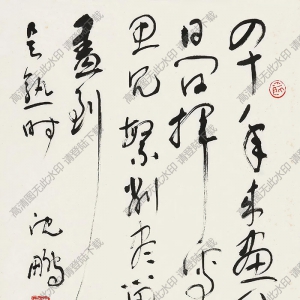 四十年来画
日间挥写
思冗繁削尽留
画到
是熟时
沈鹏
高清图无此水印 请登陆下载